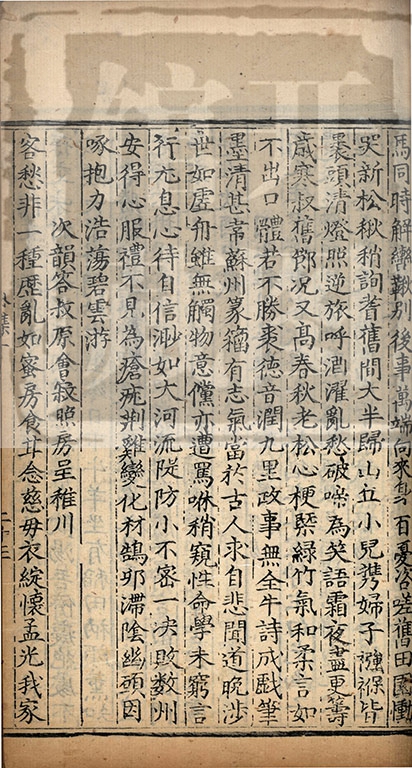 馬同時解轡鞅別後事萬端向來身百憂舊田園慟
哭新松楸稍詢耆舊間大半歸山丘小兒携婦子襁褓皆
褁頭清燈照逆旅呼酒濯亂愁破為笑語霜夜盡更籌
歲寒叔舊邪况又髙春秋老松心梗槩綠竹氣和柔言如
不出口體若不勝裘德音潤九里政事無全牛詩成戲筆
墨清甚韋蘇州篆籀有志氣當於古人求自悲聞道晚涉
世如虛舟雖無觸物意儻亦遭罵咻稍窺性命學未窮言
行尤息心待自信渺如大河流隄防小不密一决敗數州
安得心服禮不見為瘡疣荆雞變化材鵠卵滯隂幽頭因
啄抱力浩蕩碧雲游
次韻答叔原會寂照房呈稚川
客愁非一種歷亂如蜜房食甘念慈母夜綻懷孟光我家